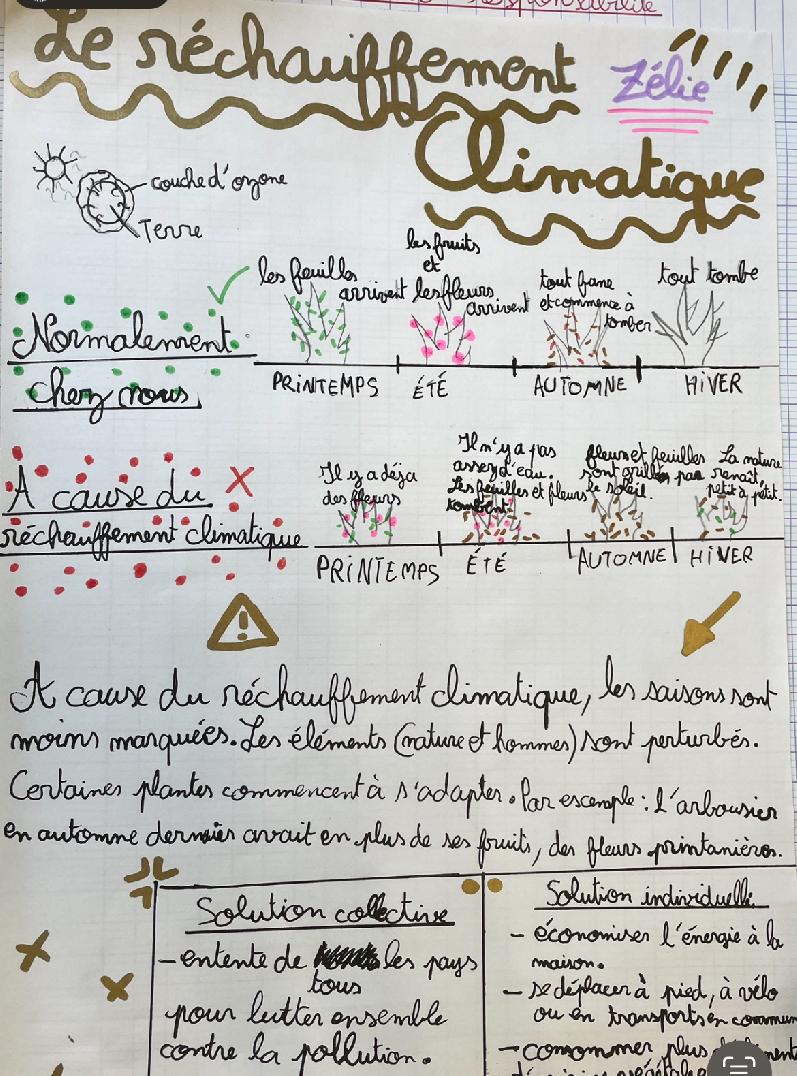 responsabilité
Le réchauffement
Zélie
Climatique
couche d'ozone
Terre
Normalement
chez nous
les feuilles
arrivent
les fruits
et
les fleurs
arrivent
tout fane
et commence à
tomber
tout tombe
PRINTEMPS ÉTÉ AUTOMNE HIVER
A cause du
réchauffement climatique
Il y a déja
des fleurs
Il n'y a pas
assez d'eau.
Les feuilles et fleurs
tombent
fleurs et feuilles
sont grillés par
le soleil.
La nature
renaît
petit à petit.
PRINTEMPS ÉTÉ AUTOMNE HIVER
A cause du réchauffement climatique, les saisons sont
moins marquées. Les éléments (nature et hommes) sont perturbés.
Certaines plantes commencent à s'adapter. Par escemple : L'arbousier
en automne dernier avait en plus de ses fruits, des fleurs printanières.
Solution collective
- entente de les pays
tous
pour lutter ensemble
contre la pollution.
Solution individuelle
- économiser l'énergie à la
maison.
- se déplacer à pied, à vélo
ou en transports en commun
- consommer plus